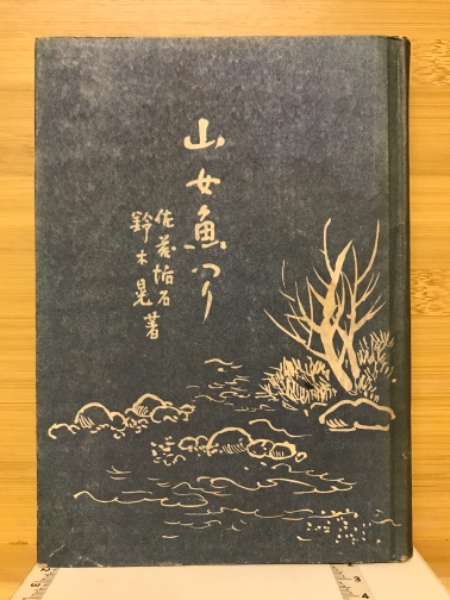 山女魚つり
佐藤垢石
鈴木晃 著